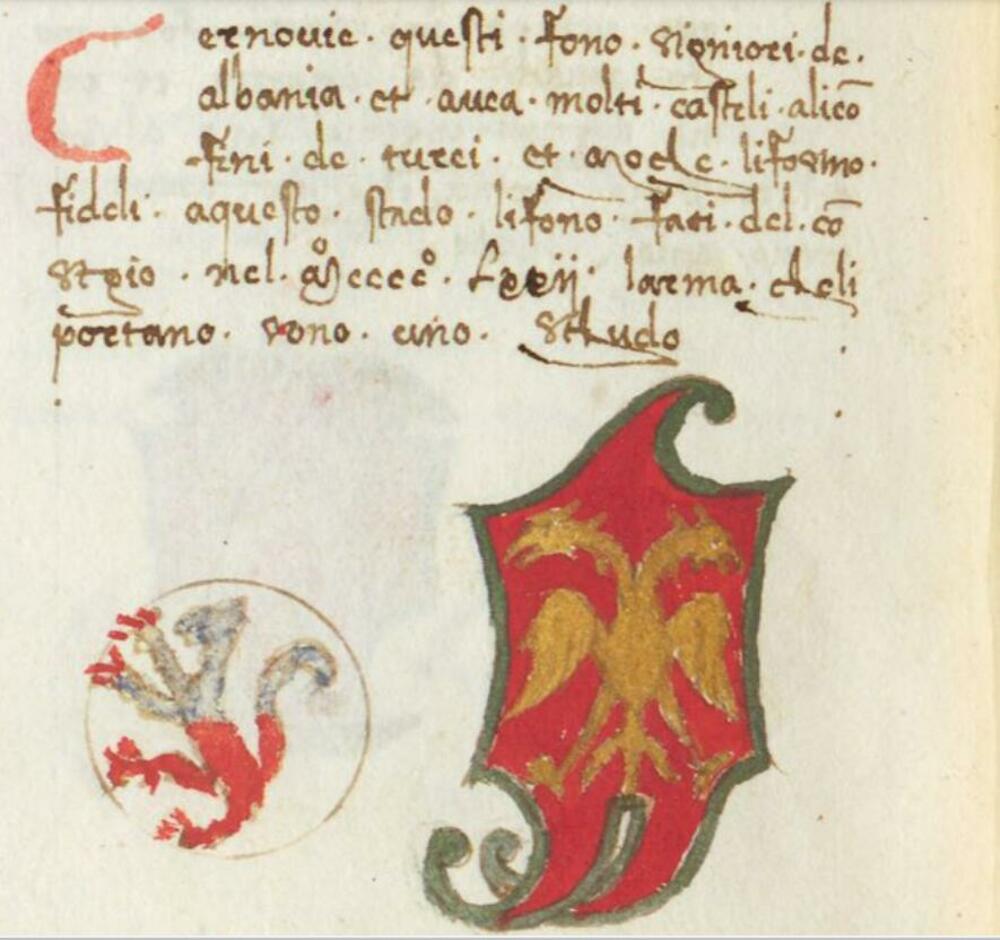 Cernovic · questi · sono · Signiori · de ·
albania · et · avea · molti · casteli · alicō
fini · de · turci · et · lifosmo ·
fideli · aquesto · stado · lifono · fati · del · cō
seglo · nel · mcccc° · Lxxij · larma · cheli
portano · sono · uno · Schudo